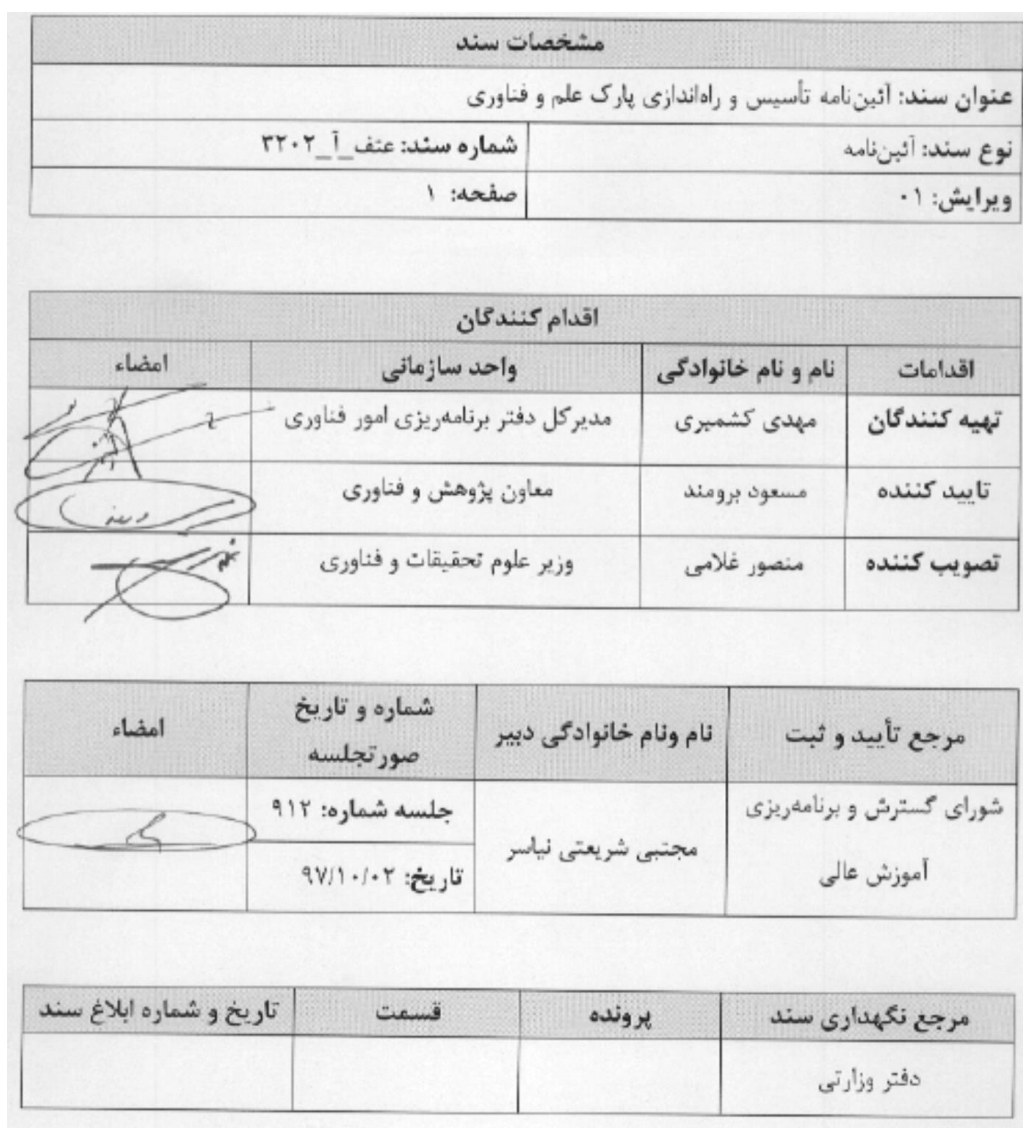 مشخصات سند
عنوان سند: آئین‌نامه تأسیس و راه‌اندازی پارک علم و فناوری
نوع سند: آئین‌نامه شماره سند: عتف_آ_۳۲۰۲
ویرایش: ۰۱ صفحه: ۱
اقدام کنندگان
اقدامات نام و نام خانوادگی واحد سازمانی امضاء
تهیه کنندگان مهدی کشمیری مدیرکل دفتر برنامه‌ریزی امور فناوری
تایید کننده مسعود برومند معاون پژوهش و فناوری
تصویب کننده منصور غلامی وزیر علوم تحقیقات و فناوری
مرجع تأیید و ثبت نام ونام خانوادگی دبیر شماره و تاریخ
صورتجلسه امضاء
شورای گسترش و برنامه‌ریزی
آموزش عالی مجتبی شریعتی نیاسر جلسه شماره: ۹۱۲
تاریخ: ۹۷/۱۰/۰۲
مرجع نگهداری سند پرونده قسمت تاریخ و شماره ابلاغ سند
دفتر وزارتی